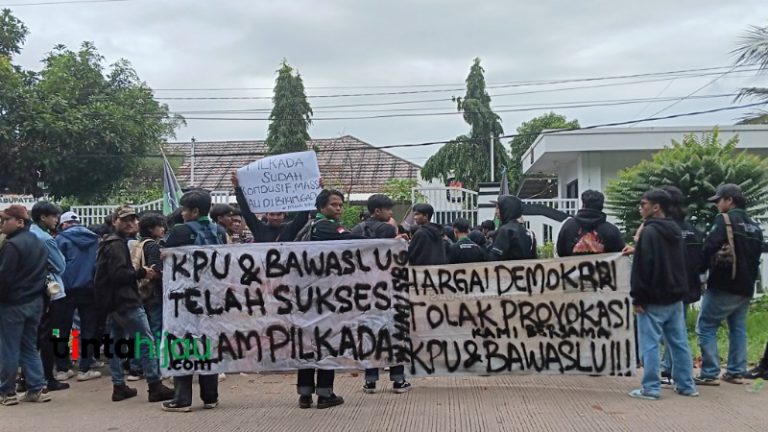 PILKADA
SUDAH
KONDUSIF, MASA
KPU & BAWASLU
TELAH SUKSES
DALAM PILKADA
HARGAI DEMOKRASI
TOLAK PROVOKASI
KAMI BERSAMA
KPU & BAWASLU!!!
tintahijau
.com